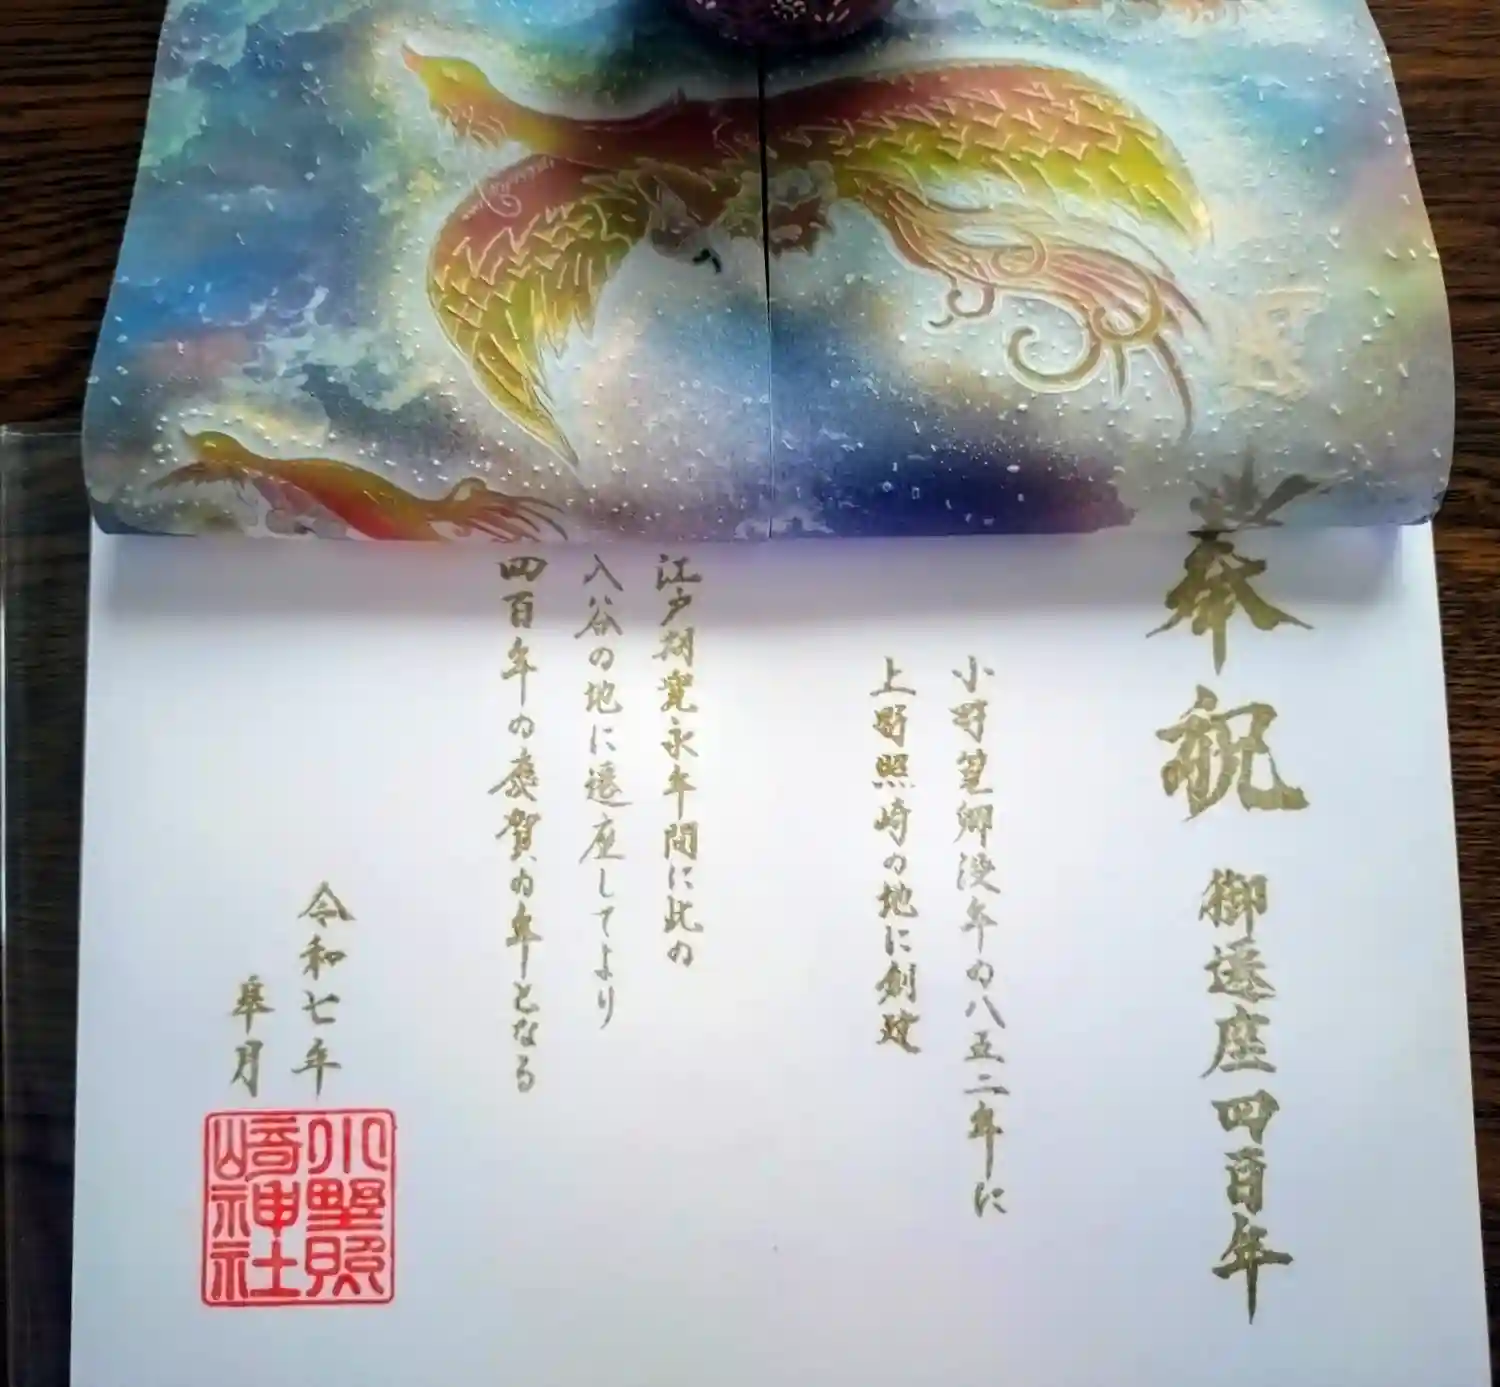 奉祝 御遷座四百年
小野篁卿没年の八五二年に
上野照崎の地に創建
江戸期寛永年間に此の
入谷の地に遷座してより
四百年の慶賀の年となる
令和七年
皐月
小野照
崎神社